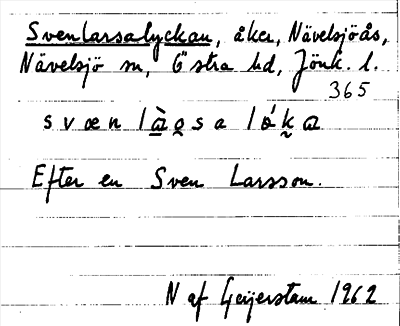 Svenlarsalyckan, åker, Nävelsjöås,
Nävelsjö sn, Östra hd, Jönk. l.
365
svænlà̠o̠sa lǿk̰a
Efter en Sven Larsson.
N af Geijerstam 1962